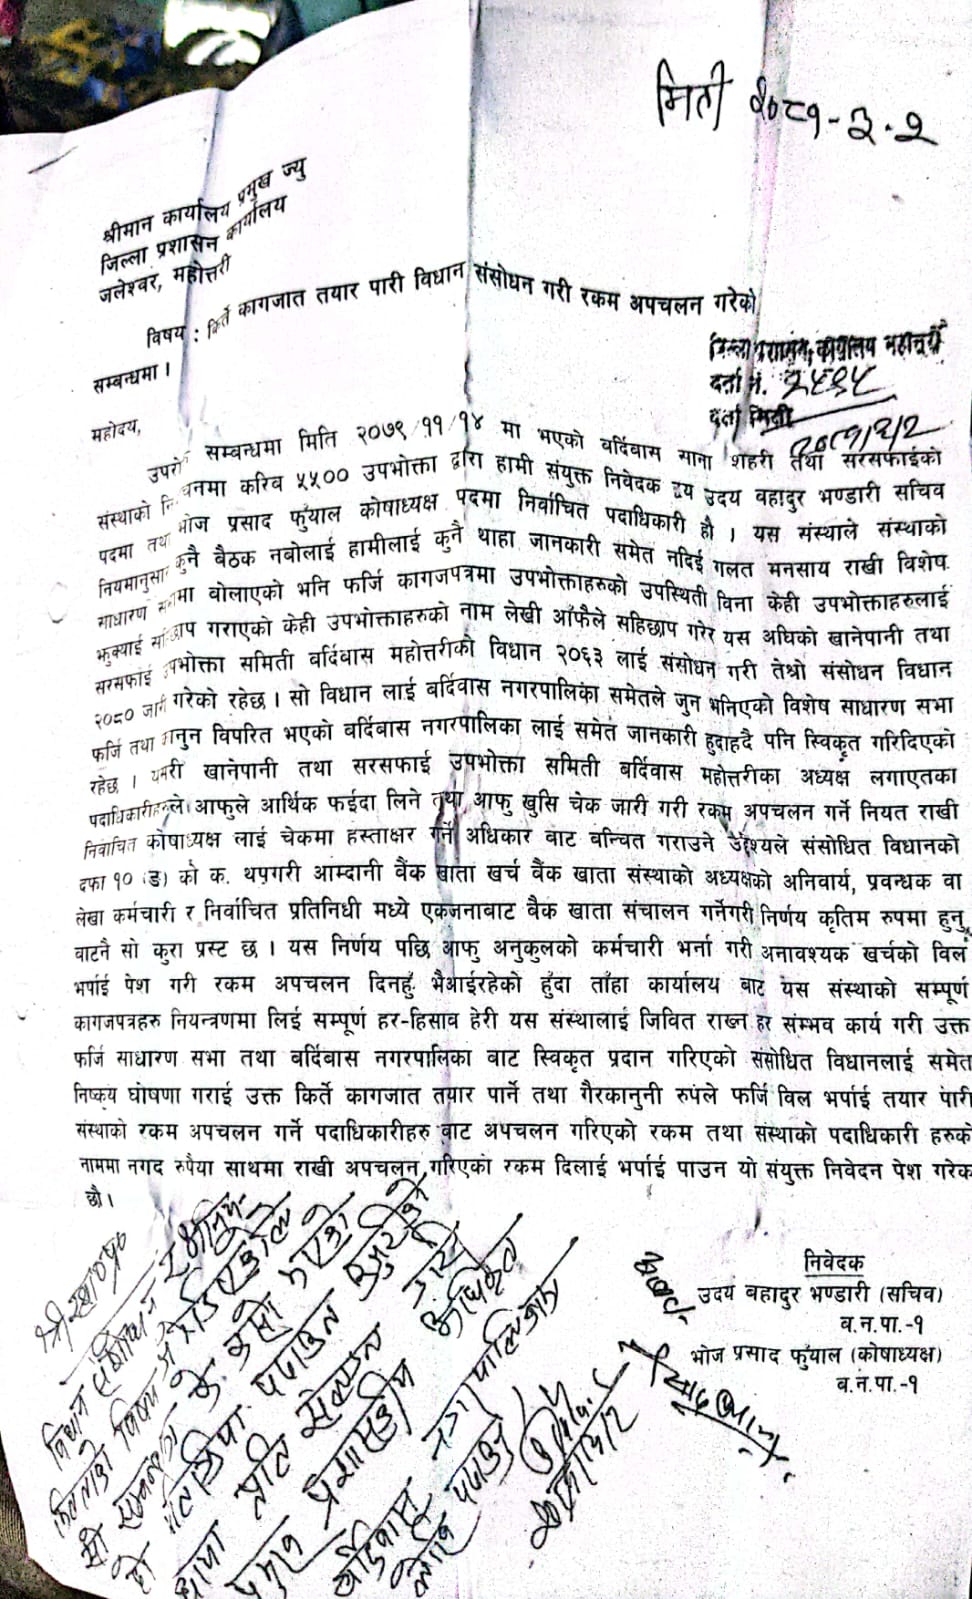 मिती २०८१-३-२
श्रीमान कार्यालय प्रमुख ज्यु
जिल्ला प्रशासन कार्यालय
जलेश्वर, महोत्तरी
विषय : किर्ते कागजात तयार पारी विधान संसोधन गरी रकम अपचलन गरेको
सम्बन्धमा ।
जिल्ला प्रशासन कार्यालय महोत्तरी
दर्ता नं.
दर्ता मिती
महोदय,
सम्बन्धमा मिति २०७९/११/१४ मा भएको बर्दिबास साना शहरी तथा सरसफाईको
संस्थाको करिब ५५०० उपभोक्ता द्वारा हामी संयुक्त निवेदक द्वय उदय बहादुर भण्डारी सचिव
पदमा तथा भोज प्रसाद फुँयाल कोषाध्यक्ष पदमा निर्वाचित पदाधिकारी हौ । यस संस्थाले संस्थाको
नियमानुसार कुनै बैठक नबोलाई हामीलाई कुनै थाहा जानकारी समेत नदिई गलत मनसाय राखी विशेष
साधारण सभामा बोलाएको भनि फर्जि कागजपत्रमा उपभोक्ताहरुको उपस्थिती विना केही उपभोक्ताहरुलाई
झुक्याई गराएको केही उपभोक्ताहरुको नाम लेखी आँफैले सहिछाप गरेर यस अघिको खानेपानी तथा
सरसफाई उपभोक्ता समिती बर्दिबास महोत्तरीको विधान २०६३ लाई संसोधन गरी तेश्रो संसोधन विधान
२०८० जारी गरेको रहेछ । सो विधान लाई बर्दिवास नगरपालिका समेतले जुन भनिएको विशेष साधारण सभा
फर्जि तथा कानुन विपरित भएको बर्दिबास नगरपालिका लाई समेत जानकारी हुदाहदै पनि स्विकृत गरिदिएको
रहेछ । यसरी खानेपानी तथा सरसफाई उपभोक्ता समिती बर्दिबास महोत्तरीका अध्यक्ष लगाएतका
पदाधिकारीहरुले आफुले आर्थिक फईदा लिने तथा आफु खुसि चेक जारी गरी रकम अपचलन गर्ने नियत राखी
निर्वाचित कोषाध्यक्ष लाई चेकमा हस्ताक्षर गर्ने अधिकार बाट बन्चित गराउने उद्देश्यले संसोधित विधानको
दफा १० (ङ) को क. थपगरी आम्दानी बैंक खाता खर्च बैंक खाता संस्थाको अध्यक्षको अनिवार्य, प्रवन्धक वा
लेखा कर्मचारी र निर्वाचित प्रतिनिधी मध्ये एकजनाबाट बैक खाता संचालन गर्नेगरी निर्णय कृतिम रुपमा हुनु
बाटनै सो कुरा प्रस्ट छ । यस निर्णय पछि आफु अनुकुलको कर्मचारी भर्ना गरी अनावश्यक खर्चको विल
भर्पाई पेश गरी रकम अपचलन दिनहुँ भैआईरहेको हुँदा ताँहा कार्यालय बाट यस संस्थाको सम्पूर्ण
कागजपत्रहरु नियन्त्रणमा लिई सम्पूर्ण हर-हिसाव हेरी यस संस्थालाई जिवित राख्न हर संम्भव कार्य गरी उक्त
फर्जि साधारण सभा तथा बर्दिबास नगरपालिका बाट स्विकृत प्रदान गरिएको संसोधित विधानलाई समेत
निष्कय घोषणा गराई उक्त किर्ते कागजात तयार पार्ने तथा गैरकानुनी रुपले फर्जि विल भर्पाई तयार पारी
संस्थाको रकम अपचलन गर्ने पदाधिकारीहरु बाट अपचलन गरिएको रकम तथा संस्थाको पदाधिकारी हरुको
नाममा नगद रुपैया साथमा राखी अपचलन गरिएको रकम दिलाई भर्पाई पाउन यो संयुक्त निवेदन पेश गरेका
छौ।
निवेदक
उदय बहादुर भण्डारी (सचिव)
ब.न.पा.-१
भोज प्रसाद फुँयाल (कोषाध्यक्ष)
ब.न.पा.-१